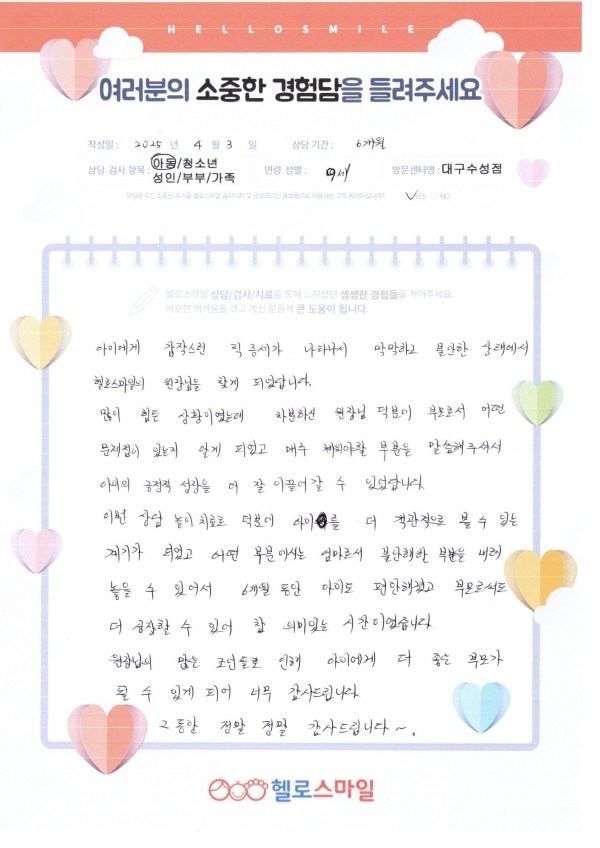 HELLOSMILE
여러분의 소중한 경험담을 들려주세요
작성일 : 2025 년 4 월 3 일 상담 기간 : 6개월
상담 검사 항목 : 아동/청소년
성인/부부/가족
연령 성별 : 9세 방문센터명 : 대구수성점
작성해 주신 소중한 후기를 헬로스마일 홈페이지 및 온오프라인 홍보용으로 사용하는 것에 동의하십니까? YES NO
헬로스마일 상담/검사/치료를 통해 느끼셨던 생생한 경험들을 적어주세요.
비슷한 어려움을 겪고 계신 분들께 큰 도움이 됩니다.
아이에게 갑작스런 틱 증세가 나타나서 막막하고 불안한 상태에서
헬로스마일의 원장님을 찾게 되었답니다.
많이 힘든 상황이었는데 차분하신 원장님 덕분에 부모로서 어떤
문제점이 있는지 알게 되었고 매주 채워야할 부분을 말씀해주셔서
아이의 긍정적 성장을 더 잘 이끌어갈 수 있었답니다.
이번 상담 놀이치료로 덕분에 아이를 더 객관적으로 볼 수 있는
계기가 되었고 어떤 부분에서는 엄마로서 불안해할 부분을 내려
놓을 수 있어서 6개월 동안 아이도 편안해졌고 부모로써도
더 성장할 수 있어 참 의미있는 시간이었습니다.
원장님의 많은 조언들로 인해 아이에게 더 좋은 부모가
될 수 있게 되어 너무 감사드립니다.
그동안 정말 정말 감사드립니다~.
헬로스마일